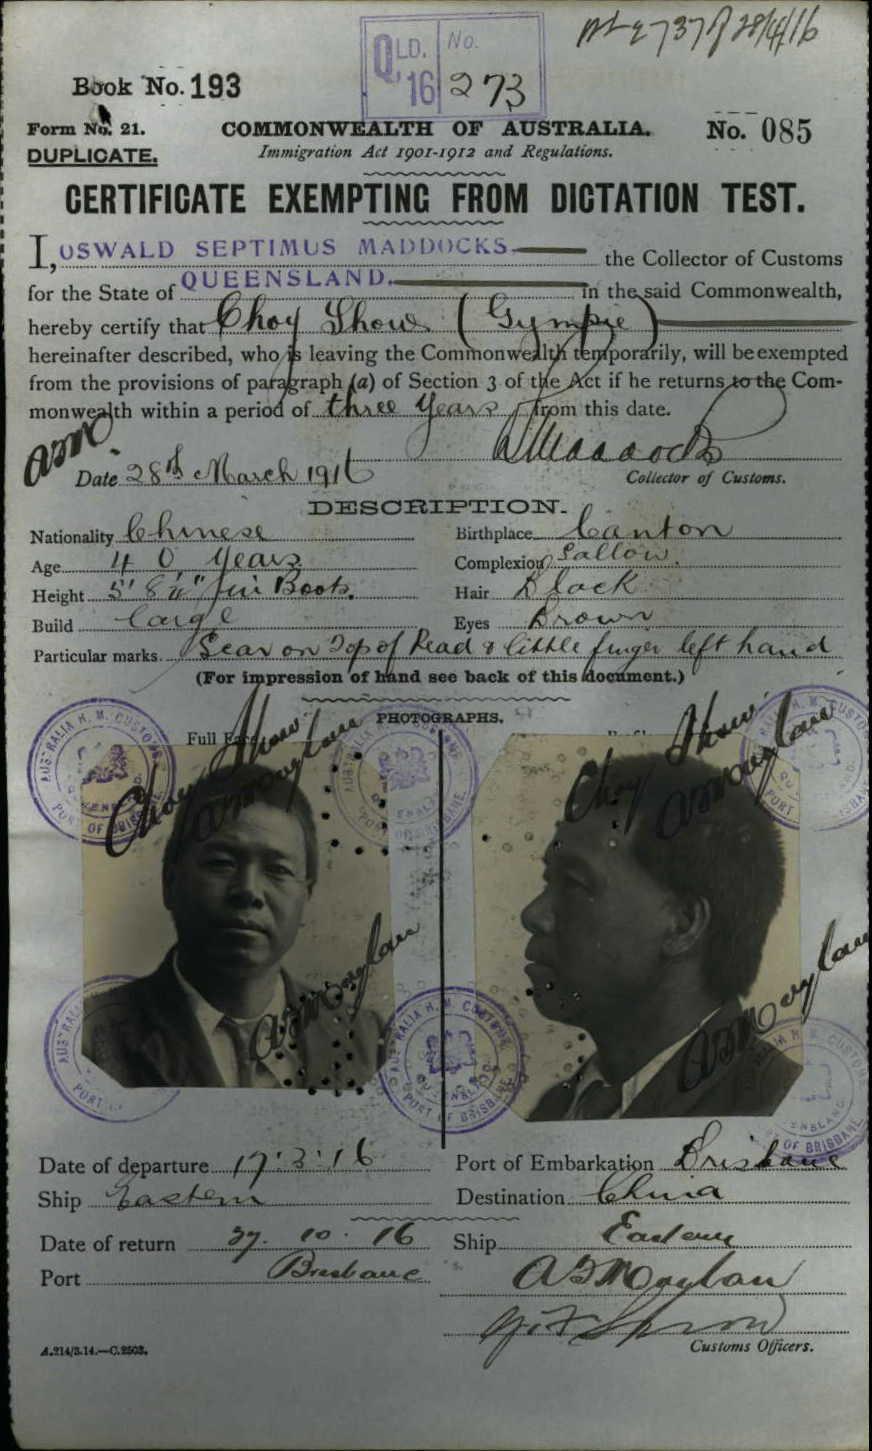 28/4/16
QLD. No.
16 273
Book No. 193
Form No. 21.
DUPLICATE.
COMMONWEALTH OF AUSTRALIA.
Immigration Act 1901-1912 and Regulations.
No. 085
CERTIFICATE EXEMPTING FROM DICTATION TEST.
I, OSWALD SEPTIMUS MADDOCKS the Collector of Customs
for the State of QUEENSLAND. in the said Commonwealth,
hereby certify that Choy Show (Gympie)
hereinafter described, who is leaving the Commonwealth temporarily, will be exempted
from the provisions of paragraph (a) of Section 3 of the Act if he returns to the Com-
monwealth within a period of three years from this date.
Date 28th March 1916
Collector of Customs.
DESCRIPTION.
Nationality Chinese
Birthplace Canton
Age 40 years
Complexion Sallow
Height 5' 8 1/4" in Boots.
Hair Black
Build large
Eyes Brown
Particular marks. Scar on Top of head & little finger left hand
(For impression of hand see back of this document.)
PHOTOGRAPHS.
Full Face
Choy Show
A B Moylan
Choy Show
A B Moylan
A B Moylan
A B Moylan
AUSTRALIA H. M. CUSTOMS
QUEENSLAND
PORT OF BRISBANE.
Date of departure 17.3.16
Port of Embarkation Brisbane
Ship Eastern
Destination China
Date of return 27.10.16
Ship Eastern
Port Brisbane
A B Moylan
Customs Officers.
A.214/3.14.—C.2503.